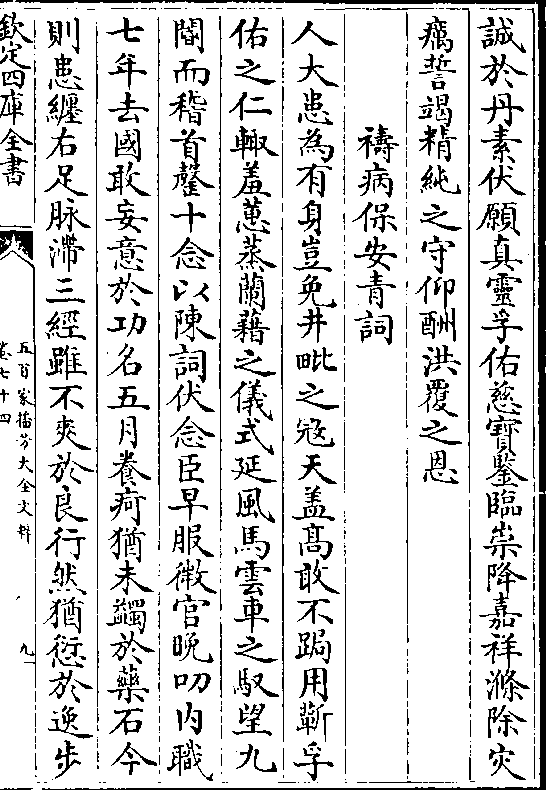 誠於丹素伏願真靈孚佑慈寶鑒臨崇降嘉祥滌除灾
癘誓竭精純之守仰酬洪覆之恩
禱病保安青詞
人大患為有身豈免井毗之冦天盖髙敢不跼用蘄孚
佑之仁輙羞蕙蒸蘭藉之儀式延風馬雲車之馭望九
閽而稽首罄十念以陳詞伏念臣早服微官晩叨内職
七年去國敢妄意於功名五月養疴猶未蠲於藥石今
則患纏右足脉滯三經雖不爽於良行然猶愆於逸步
欽定四庫全書
五百家播芳大全文粹
卷七十四
九